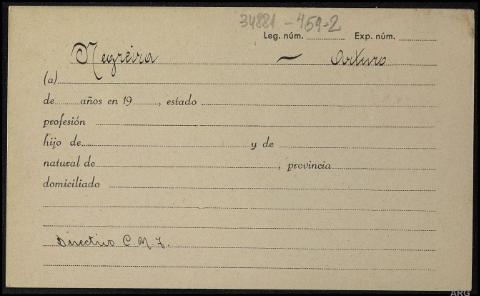 34881-459-2
Leg. núm. Exp. núm.
Negreira — Arturo
(a)
de años en 19 , estado
profesión
hijo de y de
natural de , provincia
domiciliado
Directivo C. N. T.
ARG